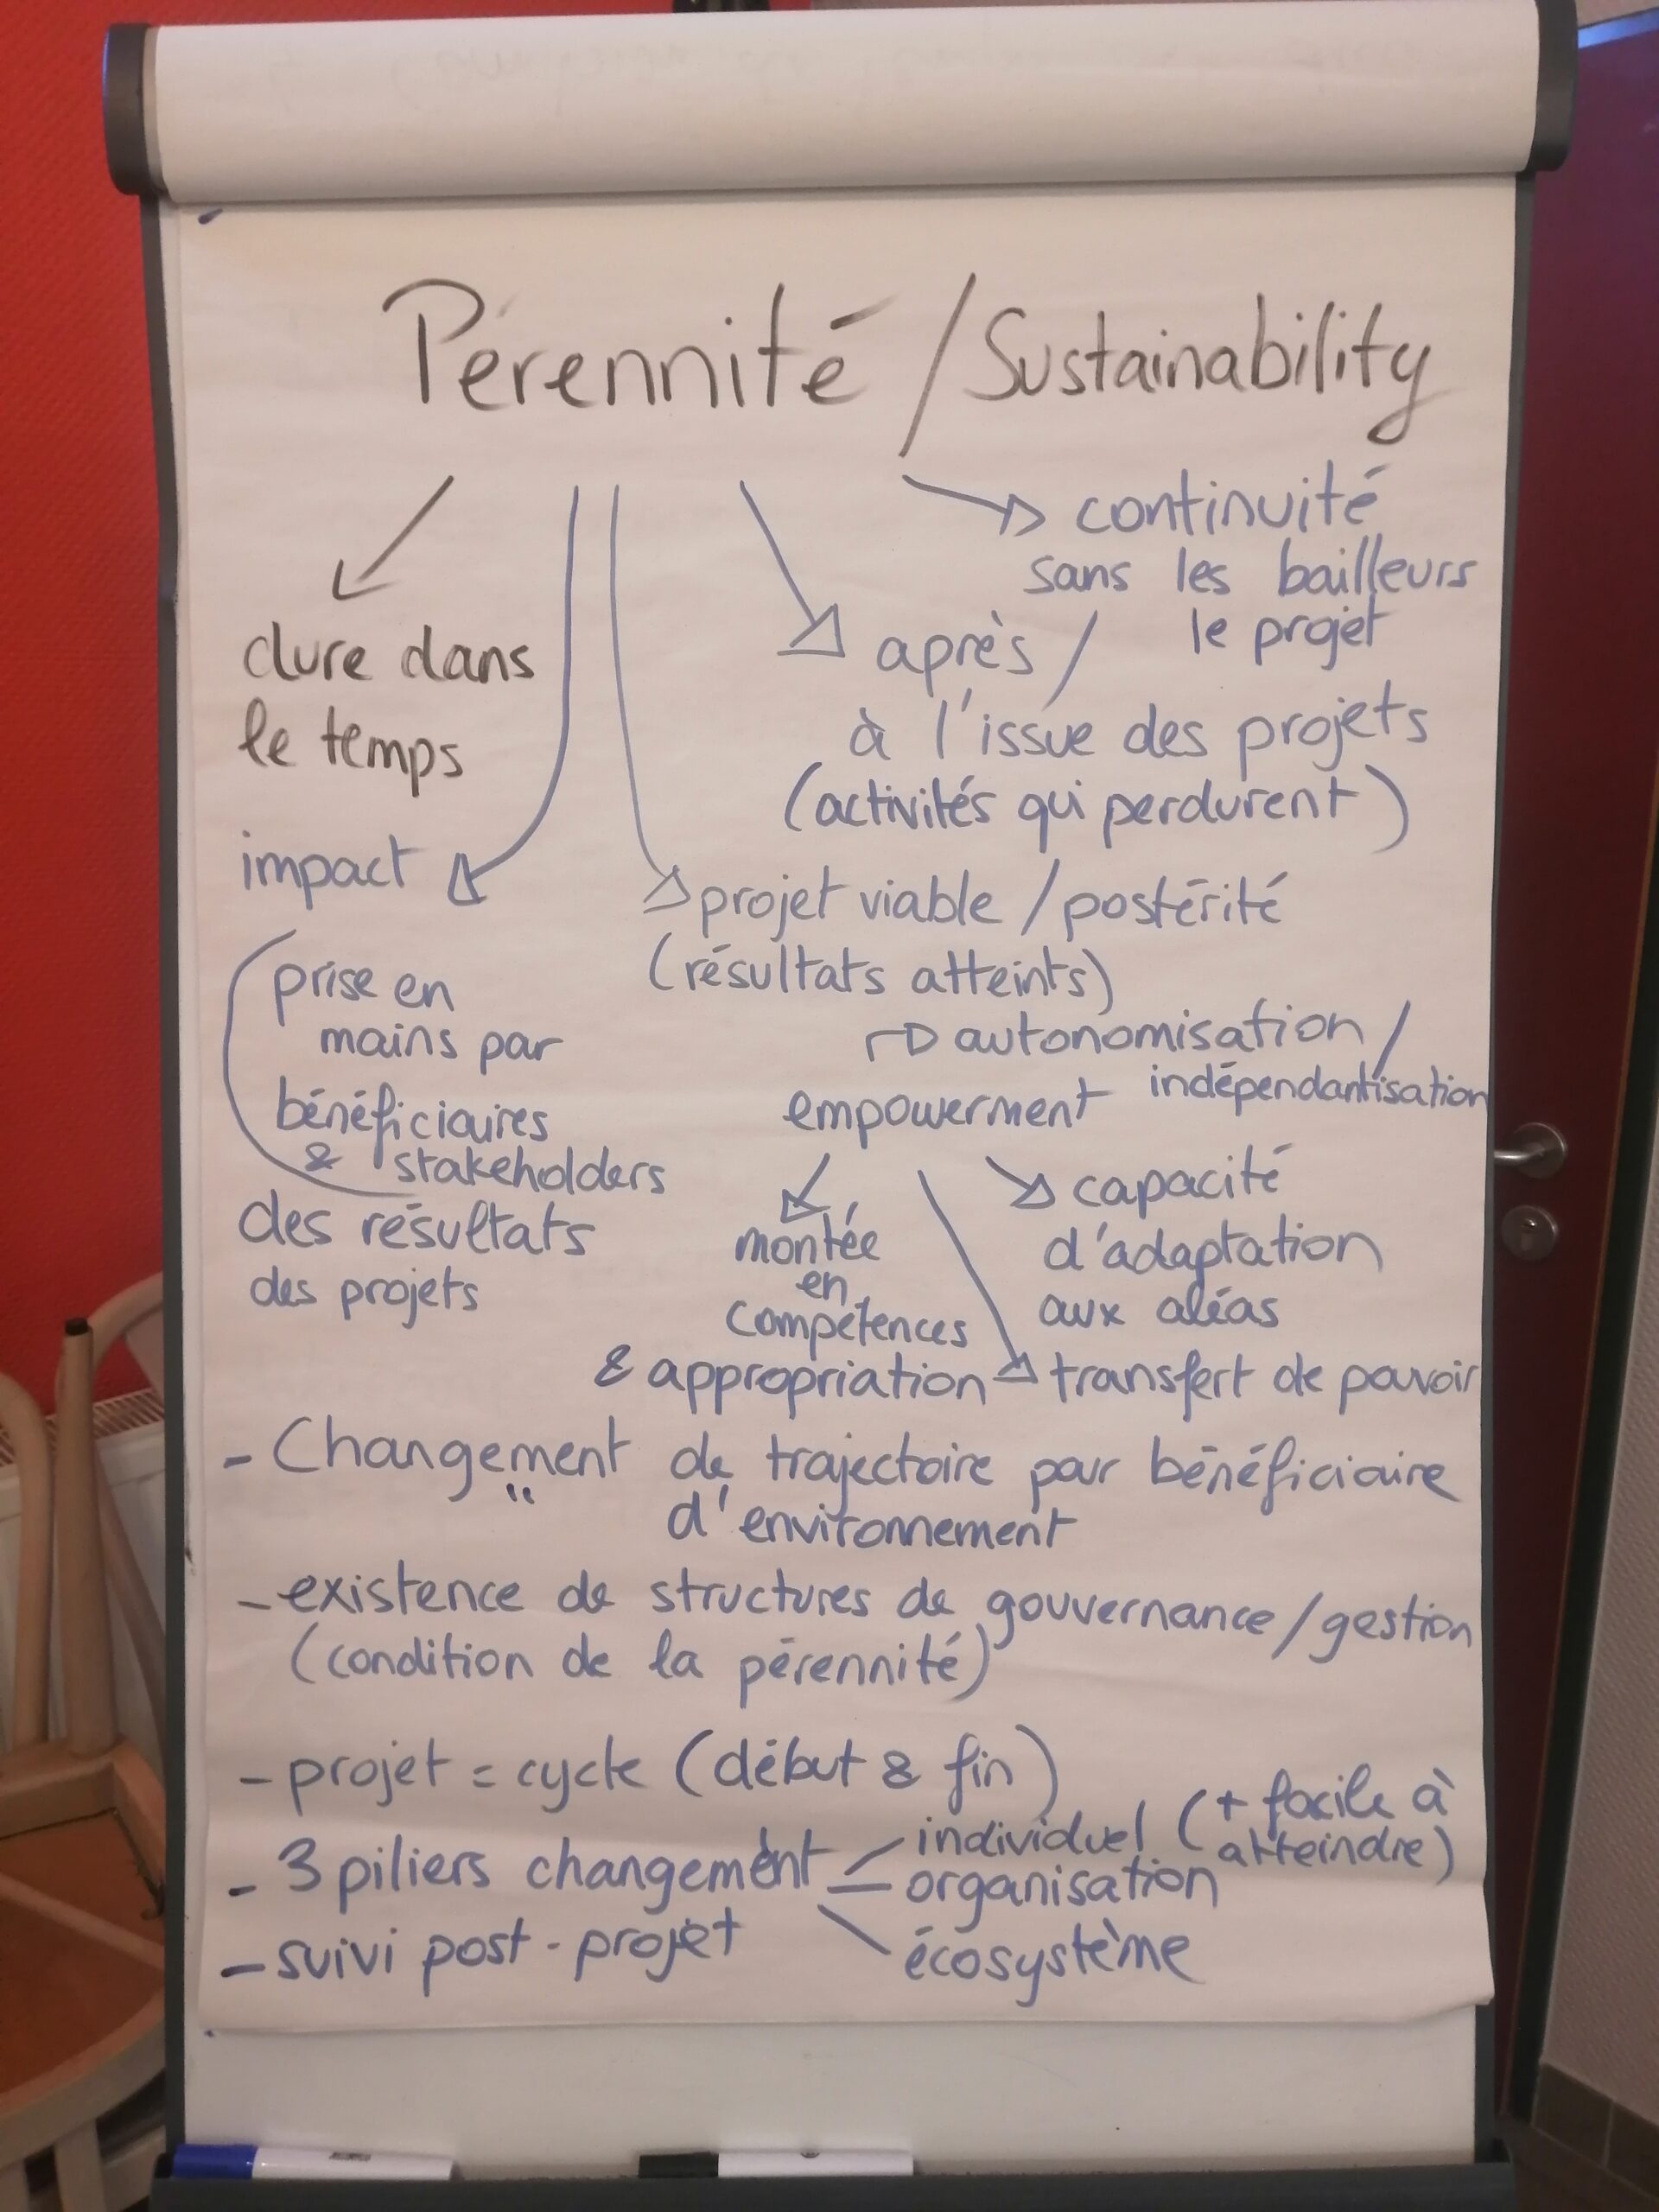 Pérennité / Sustainability
dure dans
le temps
continuité
sans les bailleurs
le projet
après /
à l'issue des projets
(activités qui perdurent)
impact
projet viable / postérité
(résultats atteints)
prise en
mains par
bénéficiaires
& stakeholders
des résultats
des projets
autonomisation /
indépendantisation
empowerment
montée
en
compétences
& appropriation
capacité
d'adaptation
aux aléas
transfert de pouvoir
- Changement de trajectoire pour bénéficiaire
" d'environnement
- existence de structures de gouvernance / gestion
(condition de la pérennité)
- projet = cycle (début & fin)
- 3 piliers changement
individuel (+ facile à
atteindre)
organisation
écosystème
- suivi post-projet